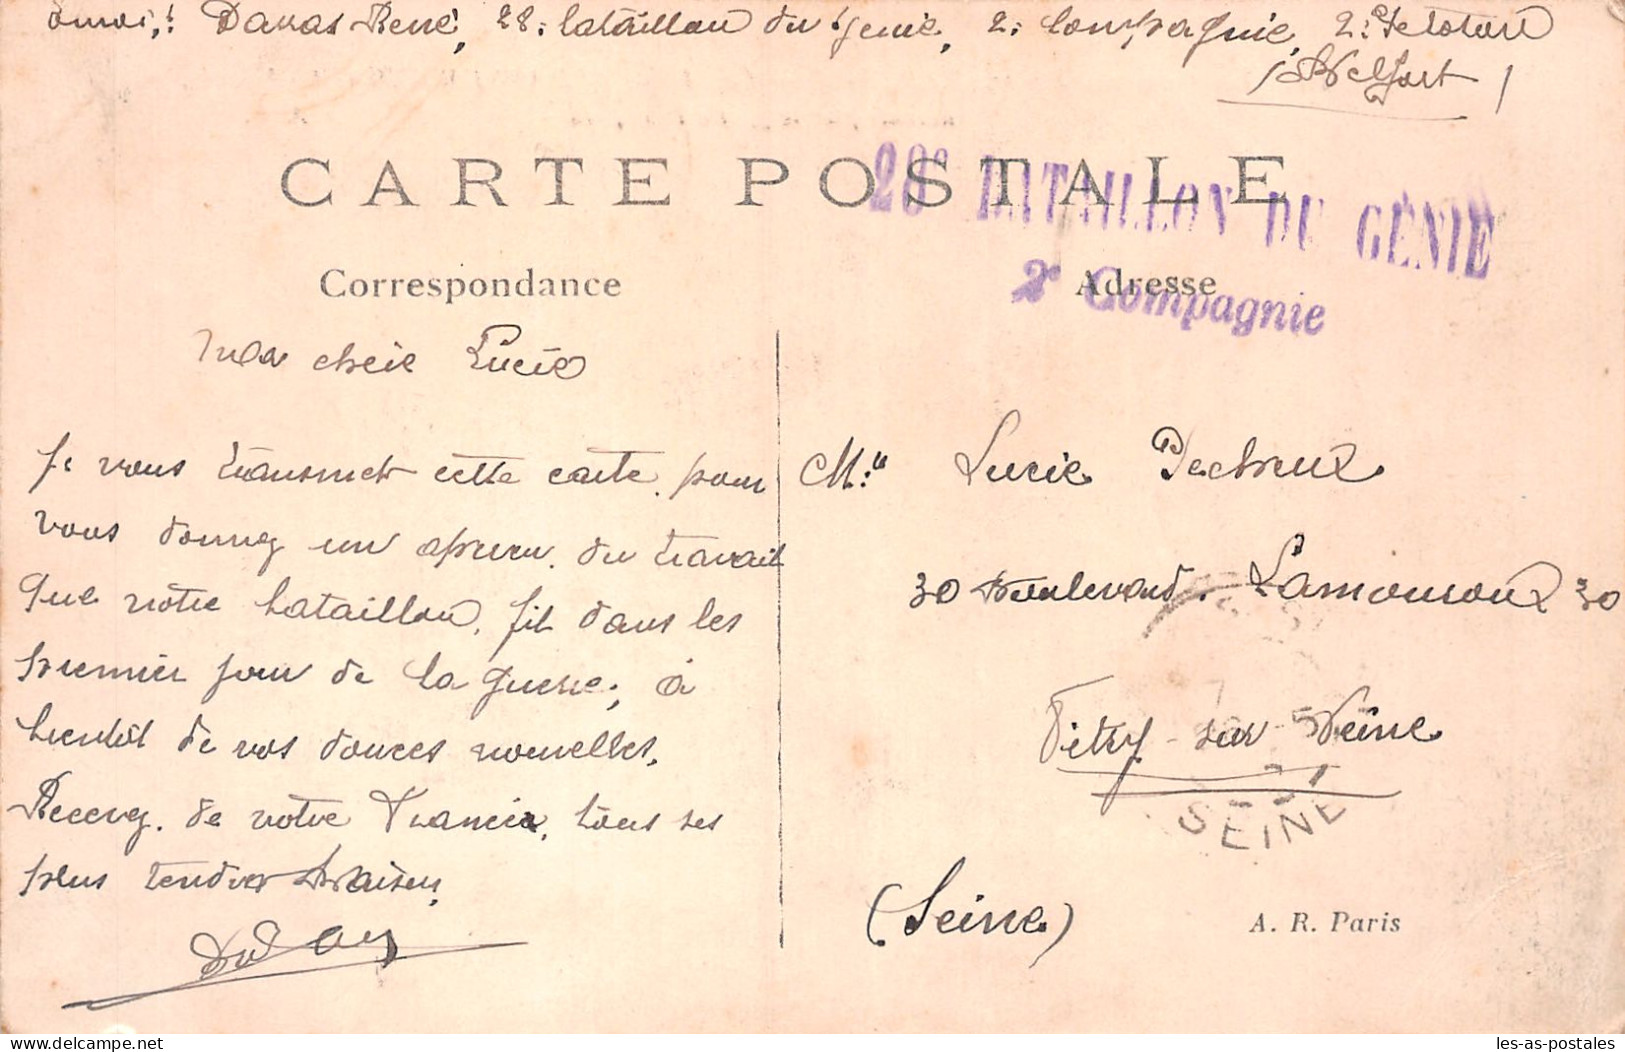 Envoi: Davas René, 28: bataillon du génie, 2: Compagnie, 2:
(Belfort)
CARTE POSTALE
28e BATAILLON DU GÉNIE
2e Compagnie
Correspondance
Adresse
Ma cheie Lucie
Je vous transmet cette carte, pour
vous donnez un apercu, du travail
que votre bataillon, fit dans les
premier jour de la guerre; à
bientôt de vos douces nouvelles.
Recevez, de votre tous ses
plus tendres baisers,
Mlle Lucie
30 Boulevard, Lamouroux 30
Vitry-sur-Seine
(Seine)
SEINE
A. R. Paris
les-as-postales
les-as-postales.com